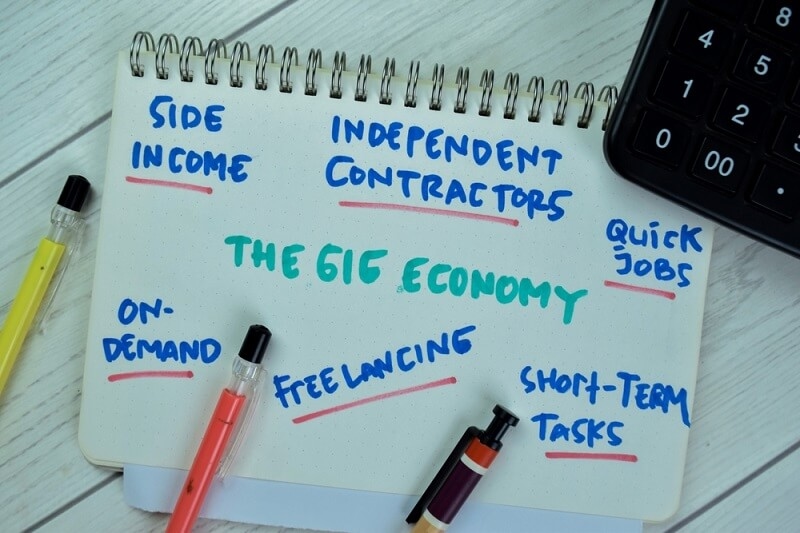 SIDE
INCOME
INDEPENDENT
CONTRACTORS
QUICK
JOBS
THE GIG ECONOMY
ON-
DEMAND
FREELANCING
SHORT-TERM
TASKS
8
4
5
1
2
3
0
00
.